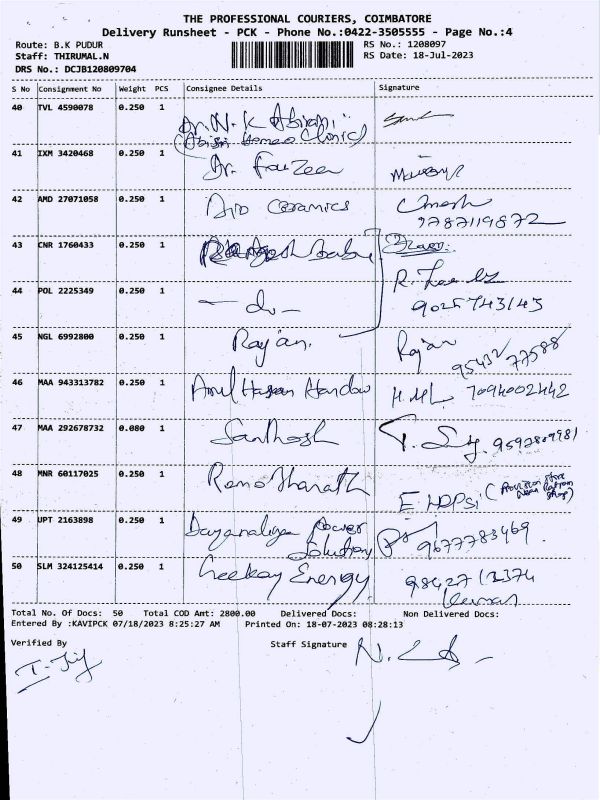 THE PROFESSIONAL COURIERS, COIMBATORE
Delivery Runsheet - PCK - Phone No.:0422-3505555 - Page No.:4
Route: B.K PUDUR
RS No.: 1208097
Staff: THIRUMAL.N
RS Date: 18-Jul-2023
DRS No.: DCJB120809704
S No Consignment No Weight PCS Consignee Details Signature
40 TVL 4590078 0.250 1 Dr. N. K Abirami
(Abisri Homeo Clinic)
41 IXM 3420468 0.250 1 Dr. Fouzeea
42 AMD 27071058 0.250 1 Ceramics Umesh
9787119872
43 CNR 1760433 0.250 1 Babu
44 POL 2225349 0.250 1 - do - R.
9025743143
45 NGL 6992800 0.250 1 Rajan. Rajan
95432 77588
46 MAA 943313782 0.250 1 Hassan H.M 7094002442
47 MAA 292678732 0.080 1 Santhosh 9592809981
48 MNR 60117025 0.250 1 Ram Bharath
49 UPT 2163898 0.250 1 Power
Solution 9677783469
50 SLM 324125414 0.250 1 Geekay Energy 98427 13374
Total No. Of Docs: 50 Total COD Amt: 2800.00 Delivered Docs: Non Delivered Docs:
Entered By :KAVIPCK 07/18/2023 8:25:27 AM Printed On: 18-07-2023 08:28:13
Verified By Staff Signature